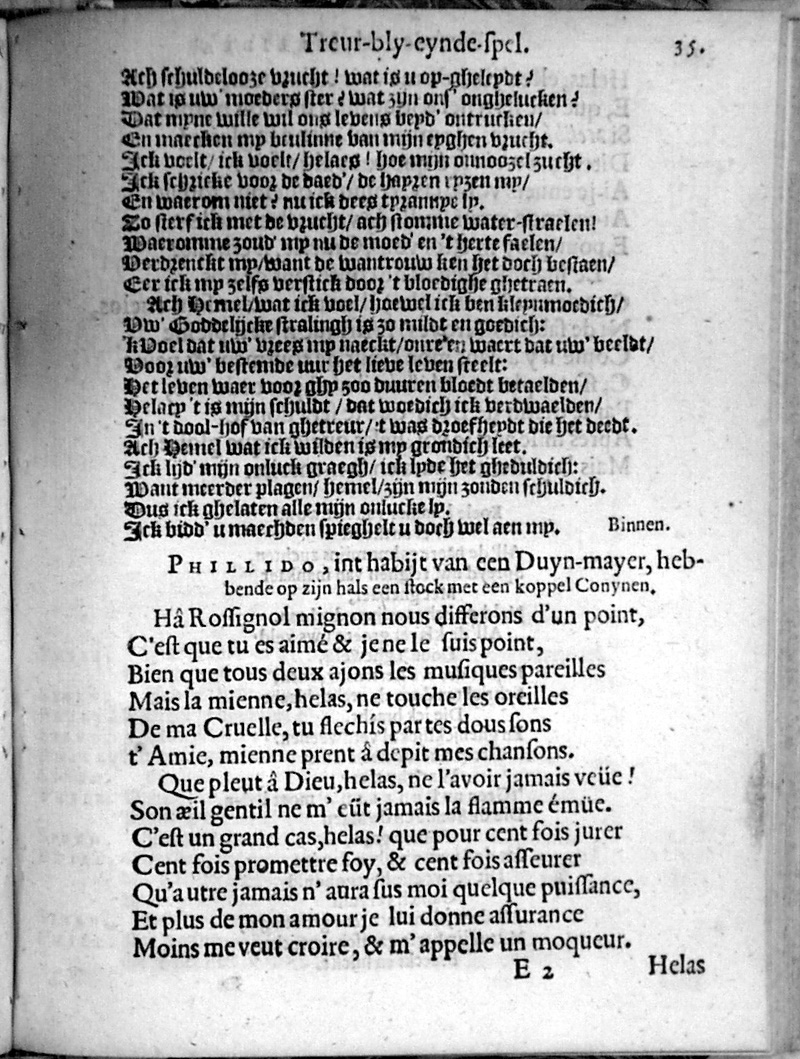 Treur-bly-eynde-ſpel. 35.
Ach ſchuldelooze vrucht! wat is u op-gheleydt?
Wat is uw' moeders ſter? wat zijn onſ' onghelucken?
Dat myne wille wil ons levens beyd' ontrucken/
En maecken my beulinne van mijn eyghen vrucht.
Ick voelt/ ick voelt/ helaes! hoe mijn onnoozel zucht.
Ick ſchricke voor de daed'/ de hayren ryzen my/
En waerom niet? nu ick dees tyrannye ly.
Zo ſterf ick met de vrucht/ ach ſtomme water-ſtraelen!
Waeromme zoud' my nu de moed' en 't herte faelen/
Verdrenckt my/want de wantrouw ken het doch beſtaen/
Eer ick my zelfs verſtick door 't bloedighe ghetraen.
Ach Hemel/wat ick voel/ hoewel ick ben kleynmoedich/
Uw' Goddelijcke ſtralingh is zo mildt en goedich:
'kVoel dat uw' vrees my naeckt/onteren waert dat uw' beeldt/
Voor uw' beſtemde uur het lieve leven ſteelt:
Het leven waer voor ghy zoo duuren bloedt betaelden/
Helacy 't is mijn ſchuldt / dat woedich ick verdwaelden/
In 't dool-hof van ghetreur/ 't was droefheydt die het deedt.
Ach Hemel wat ick wilden is my grondich leet.
Ick lijd' mijn onluck graegh/ ick lyde het gheduldich:
Want meerder plagen/ hemel/zijn mijn zonden ſchuldich.
Dus ick ghelaten alle mijn onlucke ly.
Ick bidd' u maechden ſpieghelt u doch wel aen my. Binnen.
PHILLIDO, int habijt van een Duyn-mayer, heb-
bende op zijn hals een ſtock met een koppel Conynen.
Hâ Roſſignol mignon nous differons d'un point,
C'eſt que tu es aimé & je ne le ſuis point,
Bien que tous deux ajons les muſiques pareilles
Mais la mienne, helas, ne touche les oreilles
De ma Cruelle, tu flechis par tes dous ſons
t' Amie, mienne prent â depit mes chanſons.
Que pleut â Dieu, helas, ne l'avoir jamais veüe!
Son æil gentil ne m' eüt jamais la flamme émüe.
C'eſt un grand cas, helas! que pour cent fois jurer
Cent fois promettre foy, & cent fois aſſeurer
Qu'autre jamais n' aura ſus moi quelque puiſſance,
Et plus de mon amour je lui donne aſſurance
Moins me veut croire, & m' appelle un moqueur.
E 2 Helas